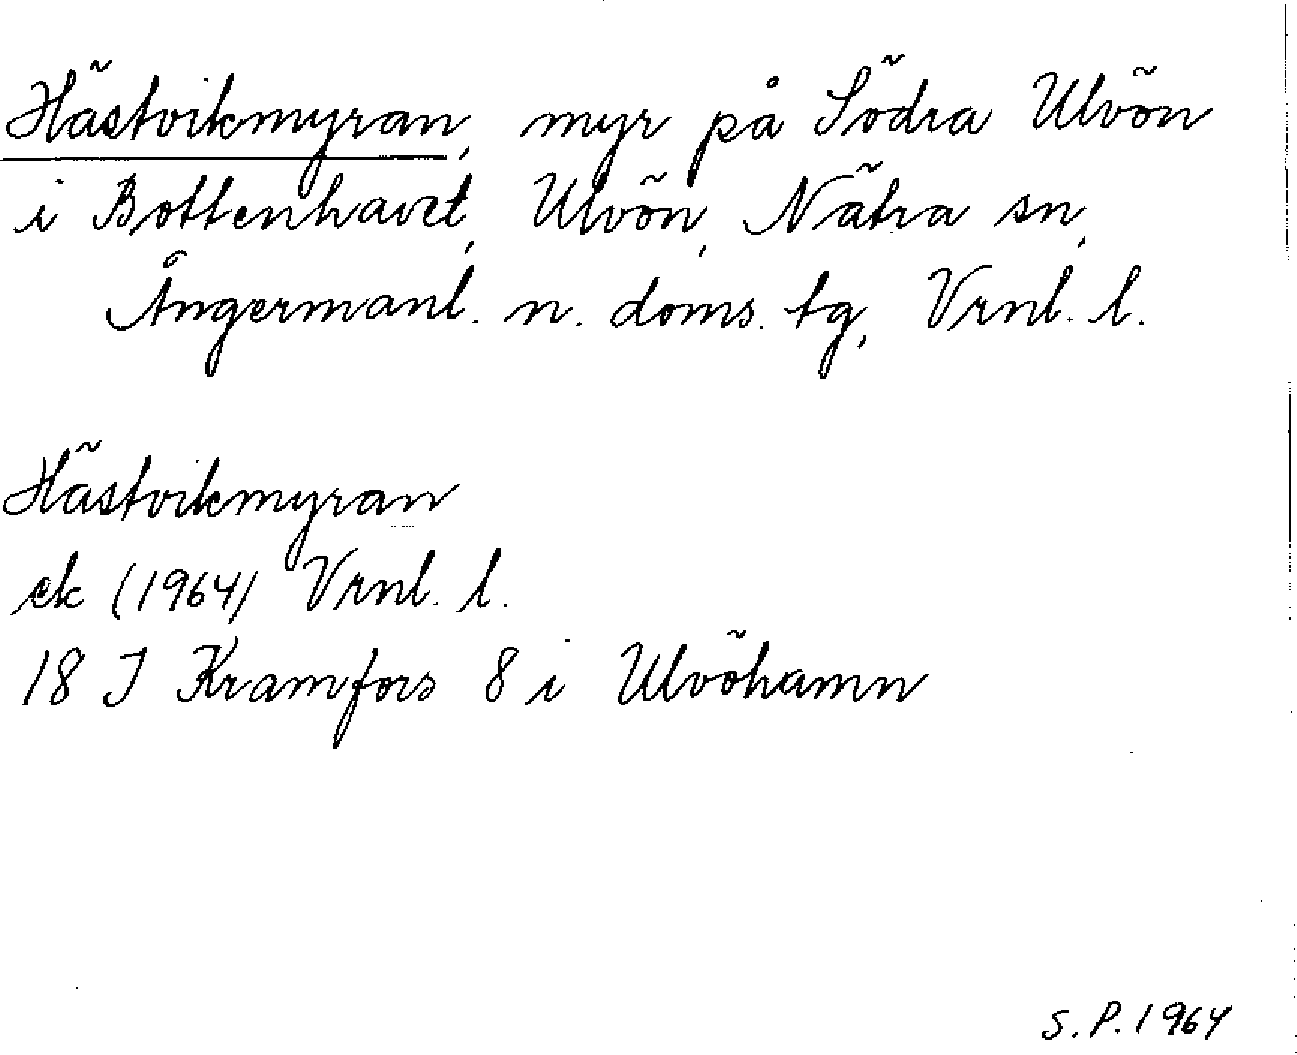 Hästvikmyran, myr på Södra Ulvön
i Bottenhavet, Ulvön, Nätra sn,
Ångermanl. n. doms. tg, Vrnl. l.
Hästvikmyran
ek (1964) Vrnl. l.
18 I Kramfors 8 i Ulvöhamn
S.P. 1964